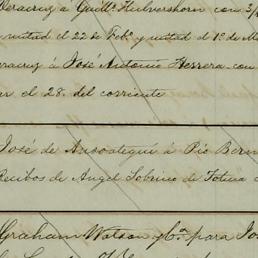 Veracruz á Guillº Hulvershorn con 3/
mitad el 22 de Febº y mitad el 1º de M
Veracruz á José Antonio Herrera con
en el 28 del corriente
José de Ansoategui á Pio Berm
Recibos de Angel Sobrino de
Graham Watson y Cª para Jo